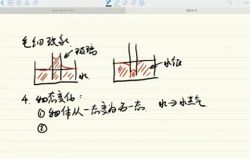 毛细现象
玻璃
水
水银
4. 物态变化:
① 物体从一态变为另一态 水→水蒸气
②